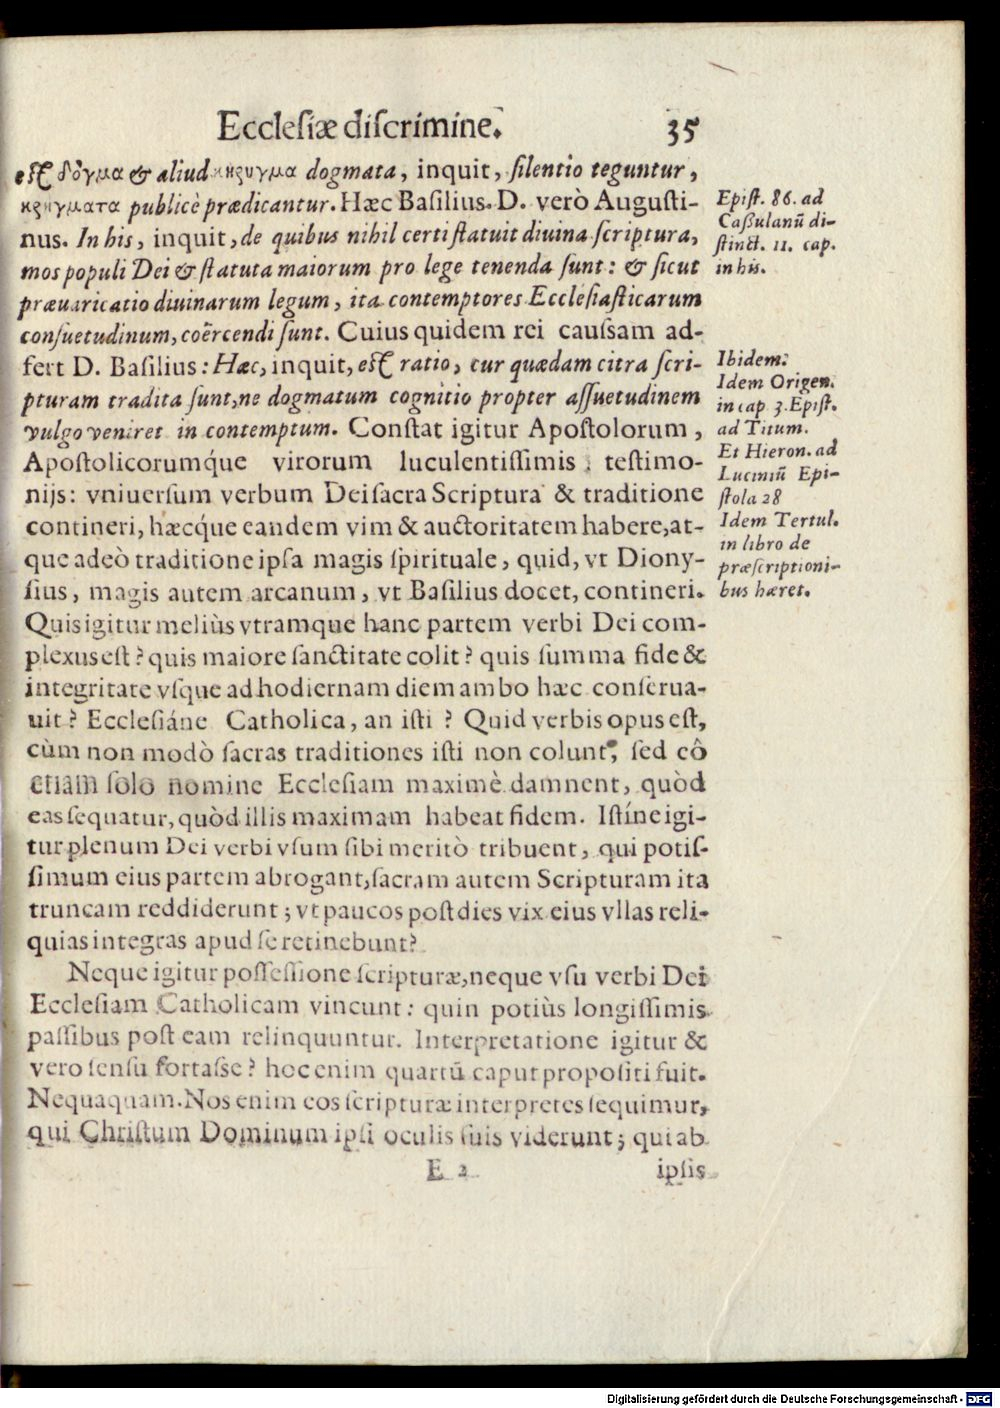 Ecclesiæ discrimine. 35
est δόγμα & aliud κηρυγμα dogmata, inquit, silentio teguntur,
κηρηγματα publicè prædicantur. Hæc Basilius. D. verò Augusti-
nus. In his, inquit, de quibus nihil certi statuit diuina scriptura,
mos populi Dei & statuta maiorum pro lege tenenda sunt: & sicut
præuaricatio diuinarum legum, ita contemptores Ecclesiasticarum
consuetudinum, coërcendi sunt. Cuius quidem rei caussam ad-
fert D. Basilius: Hæc, inquit, est ratio, cur quædam citra scri-
pturam tradita sunt, ne dogmatum cognitio propter assuetudinem
vulgo veniret in contemptum. Constat igitur Apostolorum,
Apostolicorumq́ue virorum luculentissimis testimo-
nijs: vniuersum verbum Dei sacra Scriptura & traditione
contineri, hæcq́ue eandem vim & auctoritatem habere, at-
que adeò traditione ipsa magis spirituale, quid, vt Diony-
sius, magis autem arcanum, vt Basilius docet, contineri.
Quis igitur meliùs vtramque hanc partem verbi Dei com-
plexus est? quis maiore sanctitate colit? quis summa fide &
integritate vsque ad hodiernam diem ambo hæc conserua-
uit? Ecclesiáne Catholica, an isti? Quid verbis opus est,
cùm non modò sacras traditiones isti non colunt, sed eô
etiam solo nomine Ecclesiam maximè damnent, quòd
eas sequatur, quòd illis maximam habeat fidem. Istíne igi-
tur plenum Dei verbi vsum sibi meritò tribuent, qui potis-
simum eius partem abrogant, sacram autem Scripturam ita
truncam reddiderunt; vt paucos post dies vix eius vllas reli-
quias integras apud se retinebunt?
Neque igitur possessione scripturæ, neque vsu verbi Dei
Ecclesiam Catholicam vincunt: quin potiùs longissimis
passibus post eam relinquuntur. Interpretatione igitur &
vero sensu fortasse? hoc enim quartū caput propositi fuit.
Nequaquam. Nos enim eos scripturæ interpretes sequimur,
qui Christum Dominum ipsi oculis suis viderunt; qui ab
E 2 ipsis
Epist. 86. ad
Casßulanū di-
stinct. 11. cap.
in his.
Ibidem.
Idem Origen.
in cap 3. Epist.
ad Titum.
Et Hieron. ad
Luciniū Epi-
stola 28
Idem Tertul.
in libro de
præscriptioni-
bus hæret.
Digitalisierung gefördert durch die Deutsche Forschungsgemeinschaft - DFG